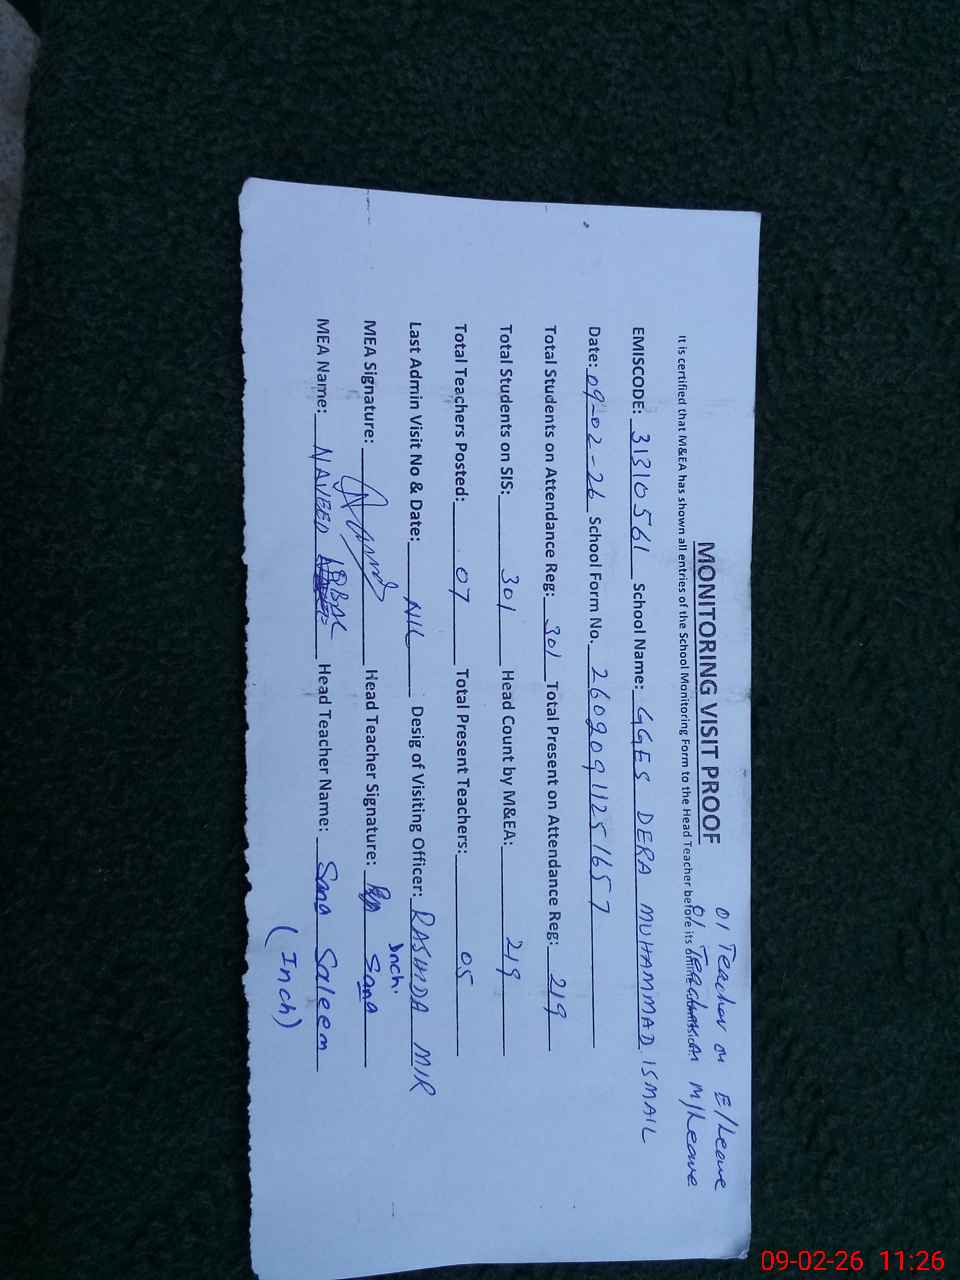 01 Teacher on E/Leave
01 Teacher on M/Leave
MONITORING VISIT PROOF
It is certified that M&EA has shown all entries of the School Monitoring Form to the Head Teacher before its online submission
EMISCODE: 31310561 School Name: GGES DERA MUHAMMAD ISMAIL
Date: 09-02-26 School Form No. 26020911251657
Total Students on Attendance Reg: 301 Total Present on Attendance Reg: 219
Total Students on SIS: 301 Head Count by M&EA: 219
Total Teachers Posted: 07 Total Present Teachers: 05
Last Admin Visit No & Date: NIL Desig of Visiting Officer: RASHIDA MIR
MEA Signature: Head Teacher Signature: Sana Inch.
MEA Name: NAVEED IQBAL Head Teacher Name: Sana Saleem
(Inch)
09-02-26 11:26